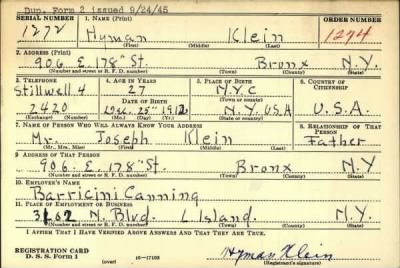 Dup. Form 2 issued 9/24/45
SERIAL NUMBER 1. NAME (Print) ORDER NUMBER
1272 Hyman Klein 1274
(First) (Middle) (Last)
2. ADDRESS (Print)
906 E. 178" St. Bronx N.Y.
(Number and street or R. F. D. number) (Town) (County) (State)
3. TELEPHONE 4. AGE IN YEARS 5. PLACE OF BIRTH 6. COUNTRY OF CITIZENSHIP
Stillwell 4 27 N.Y.C
DATE OF BIRTH (Town or county)
2420 Dec. 25" 1912 N.Y. USA U.S.A.
(Exchange) (Number) (Mo.) (Day) (Yr.) (State or country)
7. NAME OF PERSON WHO WILL ALWAYS KNOW YOUR ADDRESS 8. RELATIONSHIP OF THAT PERSON
Mr. Joseph Klein Father
(Mr., Mrs., Miss) (First) (Middle) (Last)
9. ADDRESS OF THAT PERSON
906 E. 178" St. Bronx N.Y
(Number and street or R. F. D. number) (Town) (County) (State)
10. EMPLOYER'S NAME
Barricini Canning
11. PLACE OF EMPLOYMENT OR BUSINESS
3102 N. Blvd. L Island. N.Y.
(Number and street or R. F. D. number) (Town) (County) (State)
I AFFIRM THAT I HAVE VERIFIED ABOVE ANSWERS AND THAT THEY ARE TRUE.
REGISTRATION CARD
D. S. S. Form 1 (over) 16—17105 Hyman Klein
(Registrant's signature)